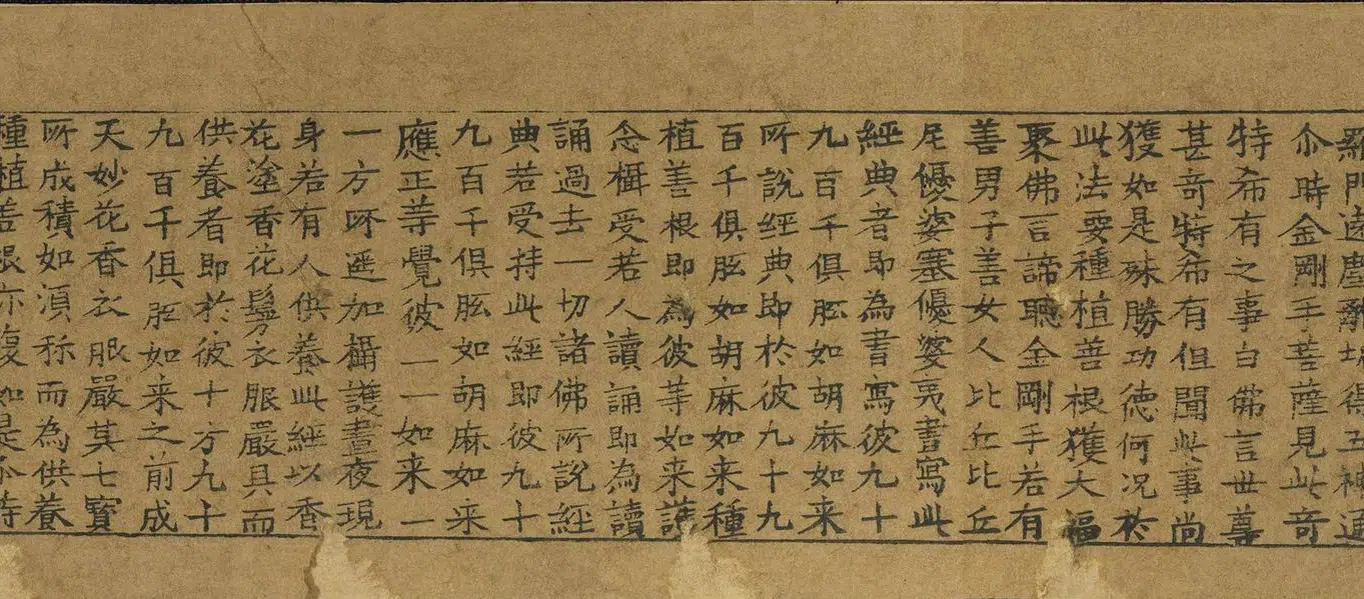 羅門遠塵離垢得五神通
尒時金剛手菩薩見此奇
特希有之事白佛言世尊
甚奇特希有但聞此事尚
獲如是殊勝功德何况於
此法要種植善根獲大福
聚佛言諦聽金剛手若有
善男子善女人比丘比丘
尼優婆塞優婆夷書寫此
經典者即為書寫彼九十
九百千俱胝如胡麻如来
所說經典即於彼九十九
百千俱胝如胡麻如来種
植善根即為彼等如来護
念攝受若人讀誦即為讀
誦過去一切諸佛所說經
典若受持此經即彼九十
九百千俱胝如胡麻如来
應正等覺彼一一如来一
一方所遥加攝護晝夜現
身若有人供養此經以香
花塗香花鬘衣服嚴具而
供養者即於彼十方九十
九百千俱胝如来之前成
天妙花香衣服嚴其七寶
所成積如湏称而為供養
種植善根亦復如是尒時